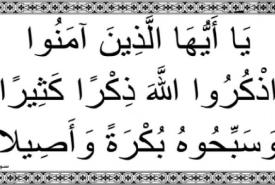 يَا أَيُّهَا الَّذِينَ آمَنُوا
اذْكُرُوا اللَّهَ ذِكْرًا كَثِيرًا
وَسَبِّحُوهُ بُكْرَةً وَأَصِيلا